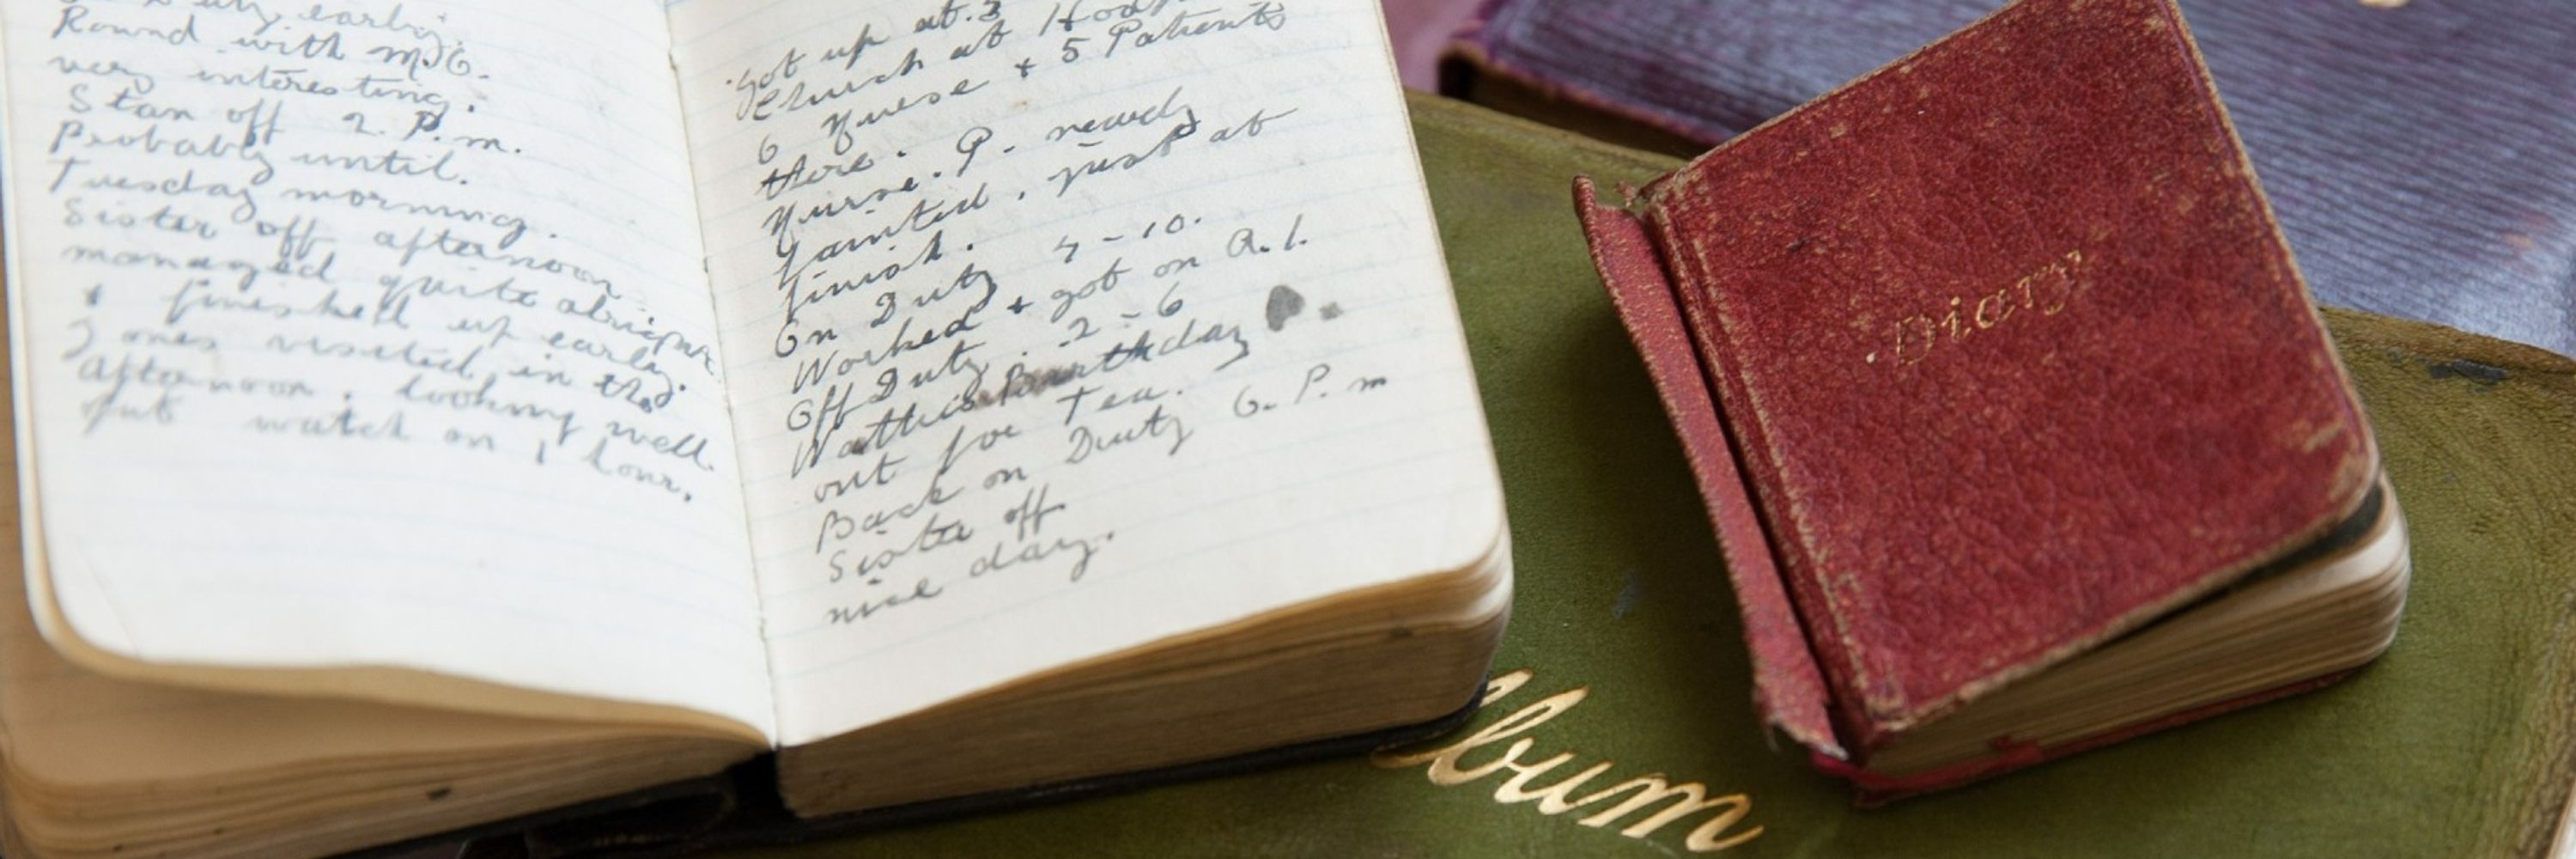 Duty early.
Round with M.O.
very interesting.
Stan off 2. P.m.
Probably until.
Tuesday morning.
Sister off afternoon
managed quite alright
+ finished up early.
Jones visited in the
afternoon. looking well.
put watch on 1 hour.
Got up at.
Church at
6 Nurse + 5 Patients
there. P. nearly
Nurse.
fainted. just at
finish.
On Duty 4 - 10.
Worked + got on A.1.
Off Duty. 2 - 6
Watties Birthday
out for Tea.
Back on Duty 6. P. m
Sister off
nice day.
Diary
lbum